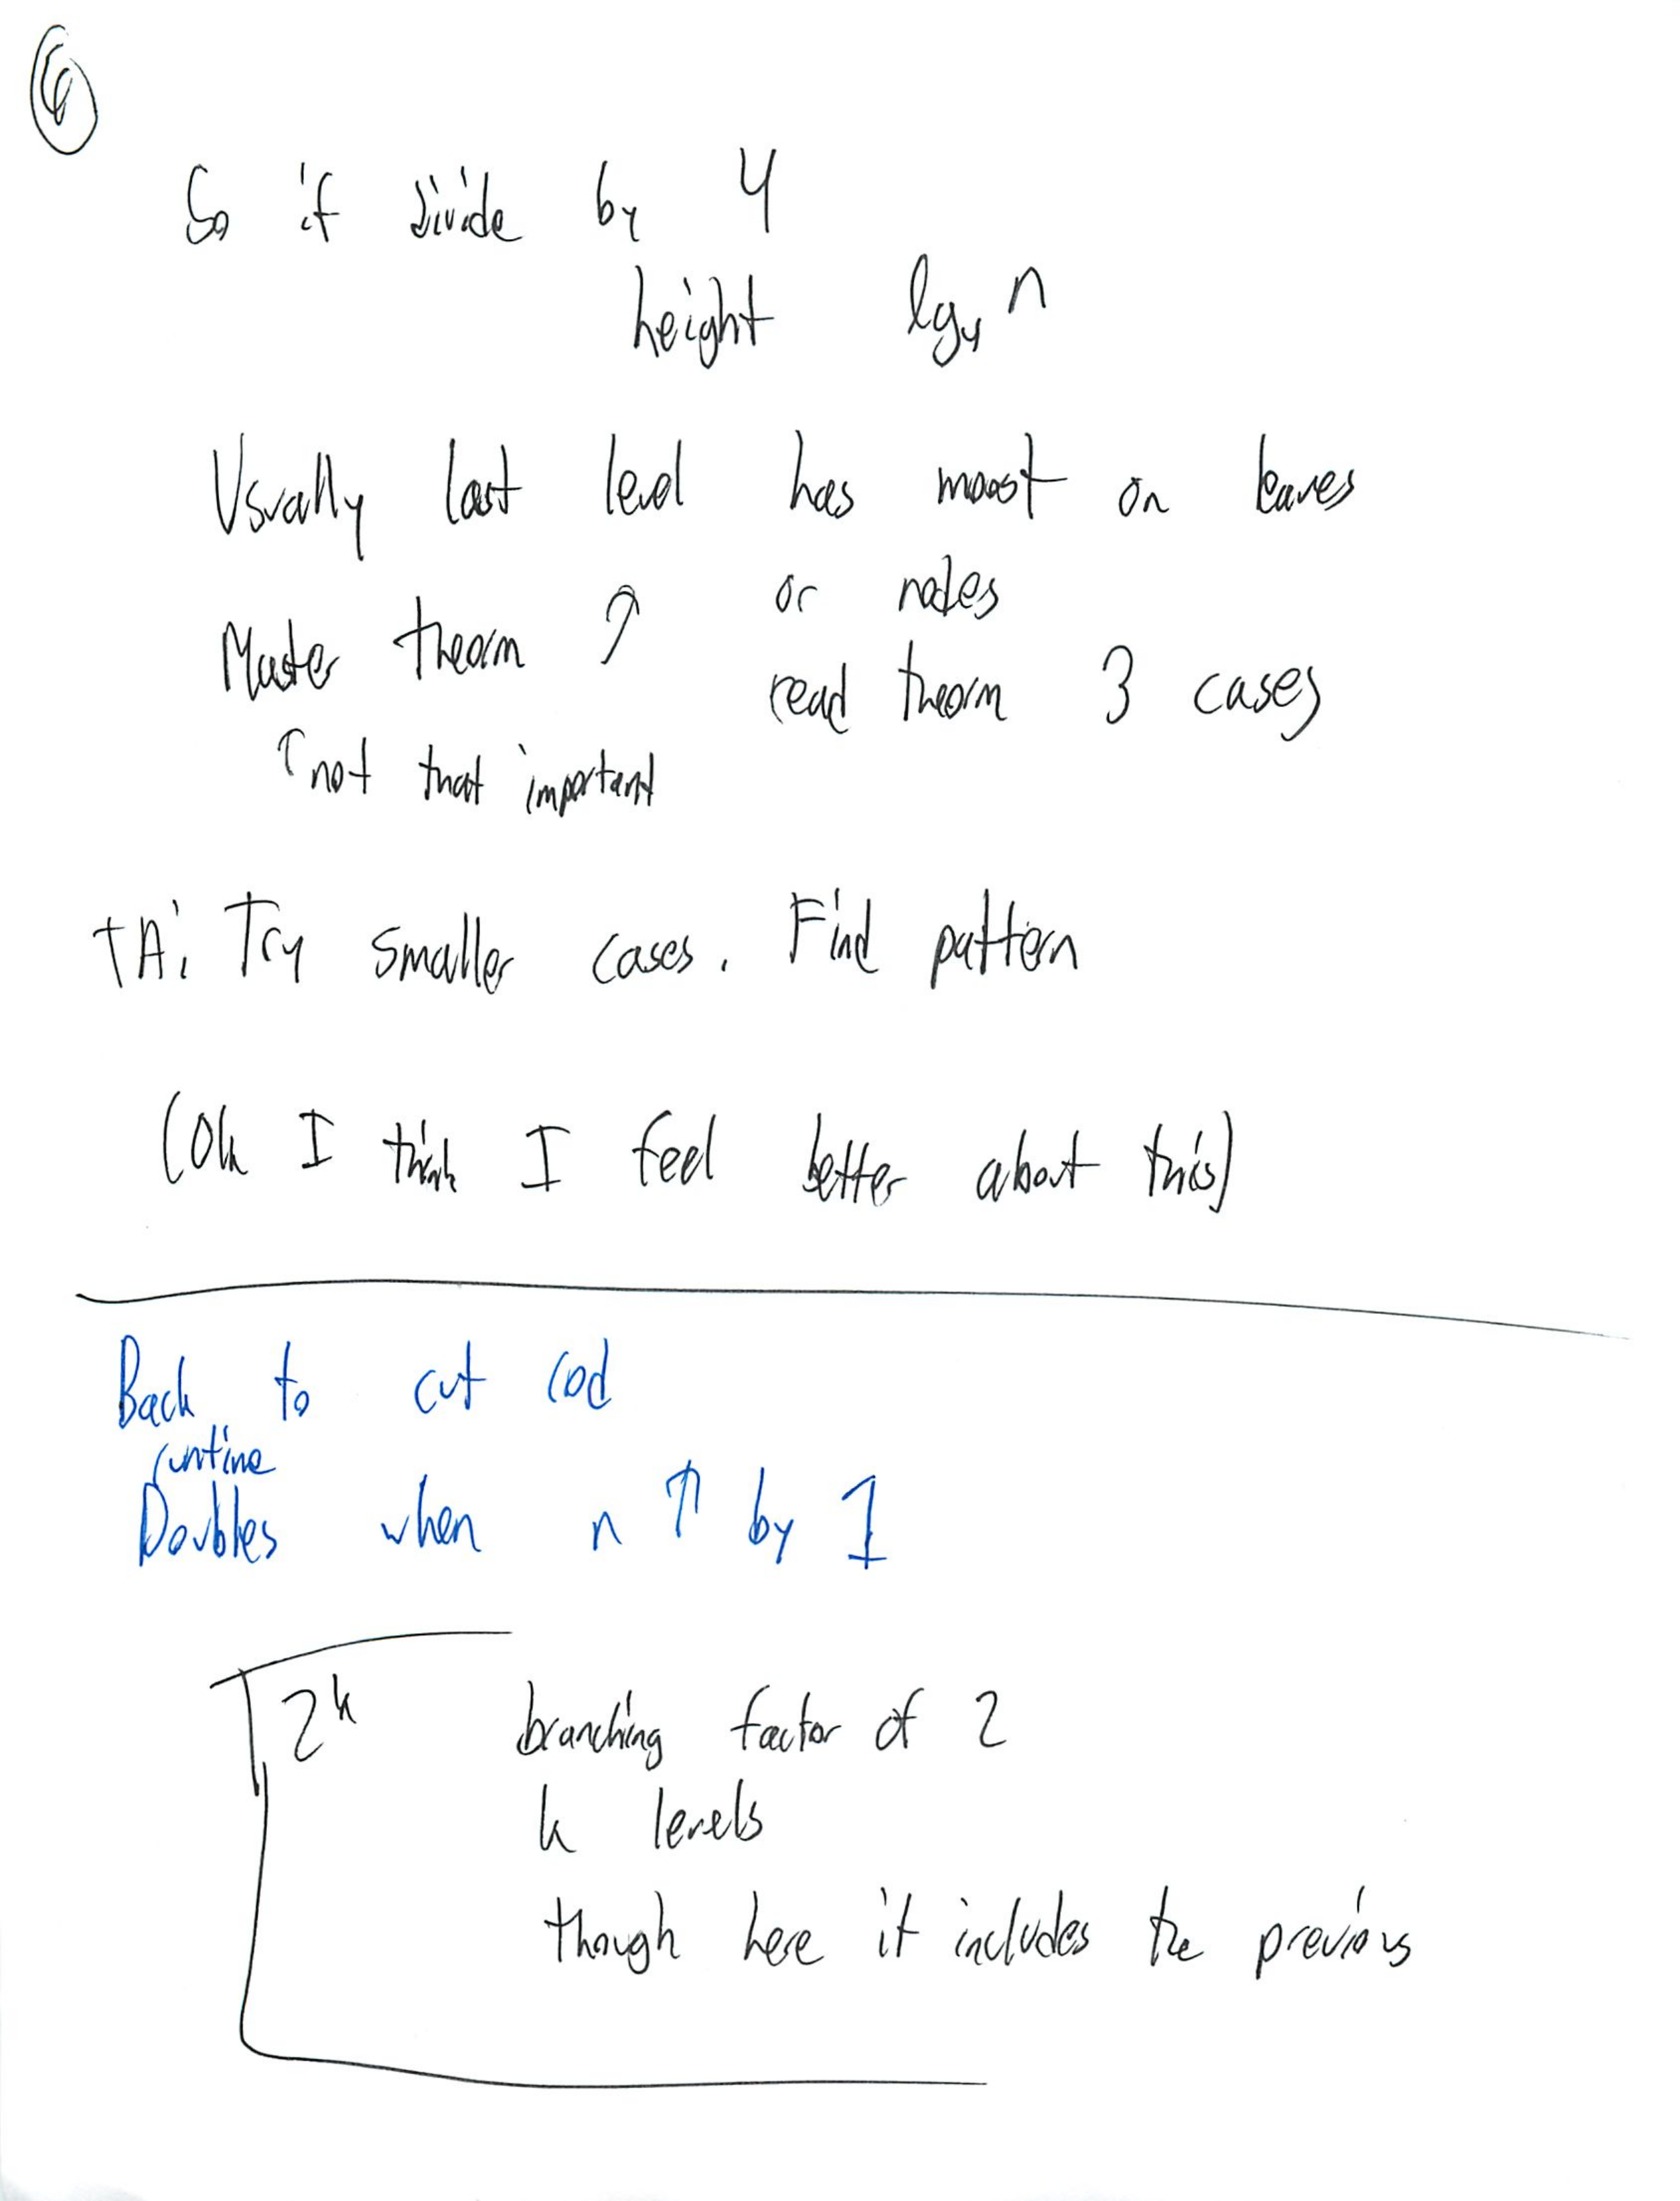 So if divide by 4
height lg₄ n
Usually last level has moost on leaves
or nodes
Master theorm ↑
read theorm 3 cases
↑ not that important
TA: Try smaller cases. Find pattern
(Ok I think I feel better about this)
Back to cut rod
runtime
Doubles when n ↑ by 1
2^k branching factor of 2
k levels
though here it includes the previous